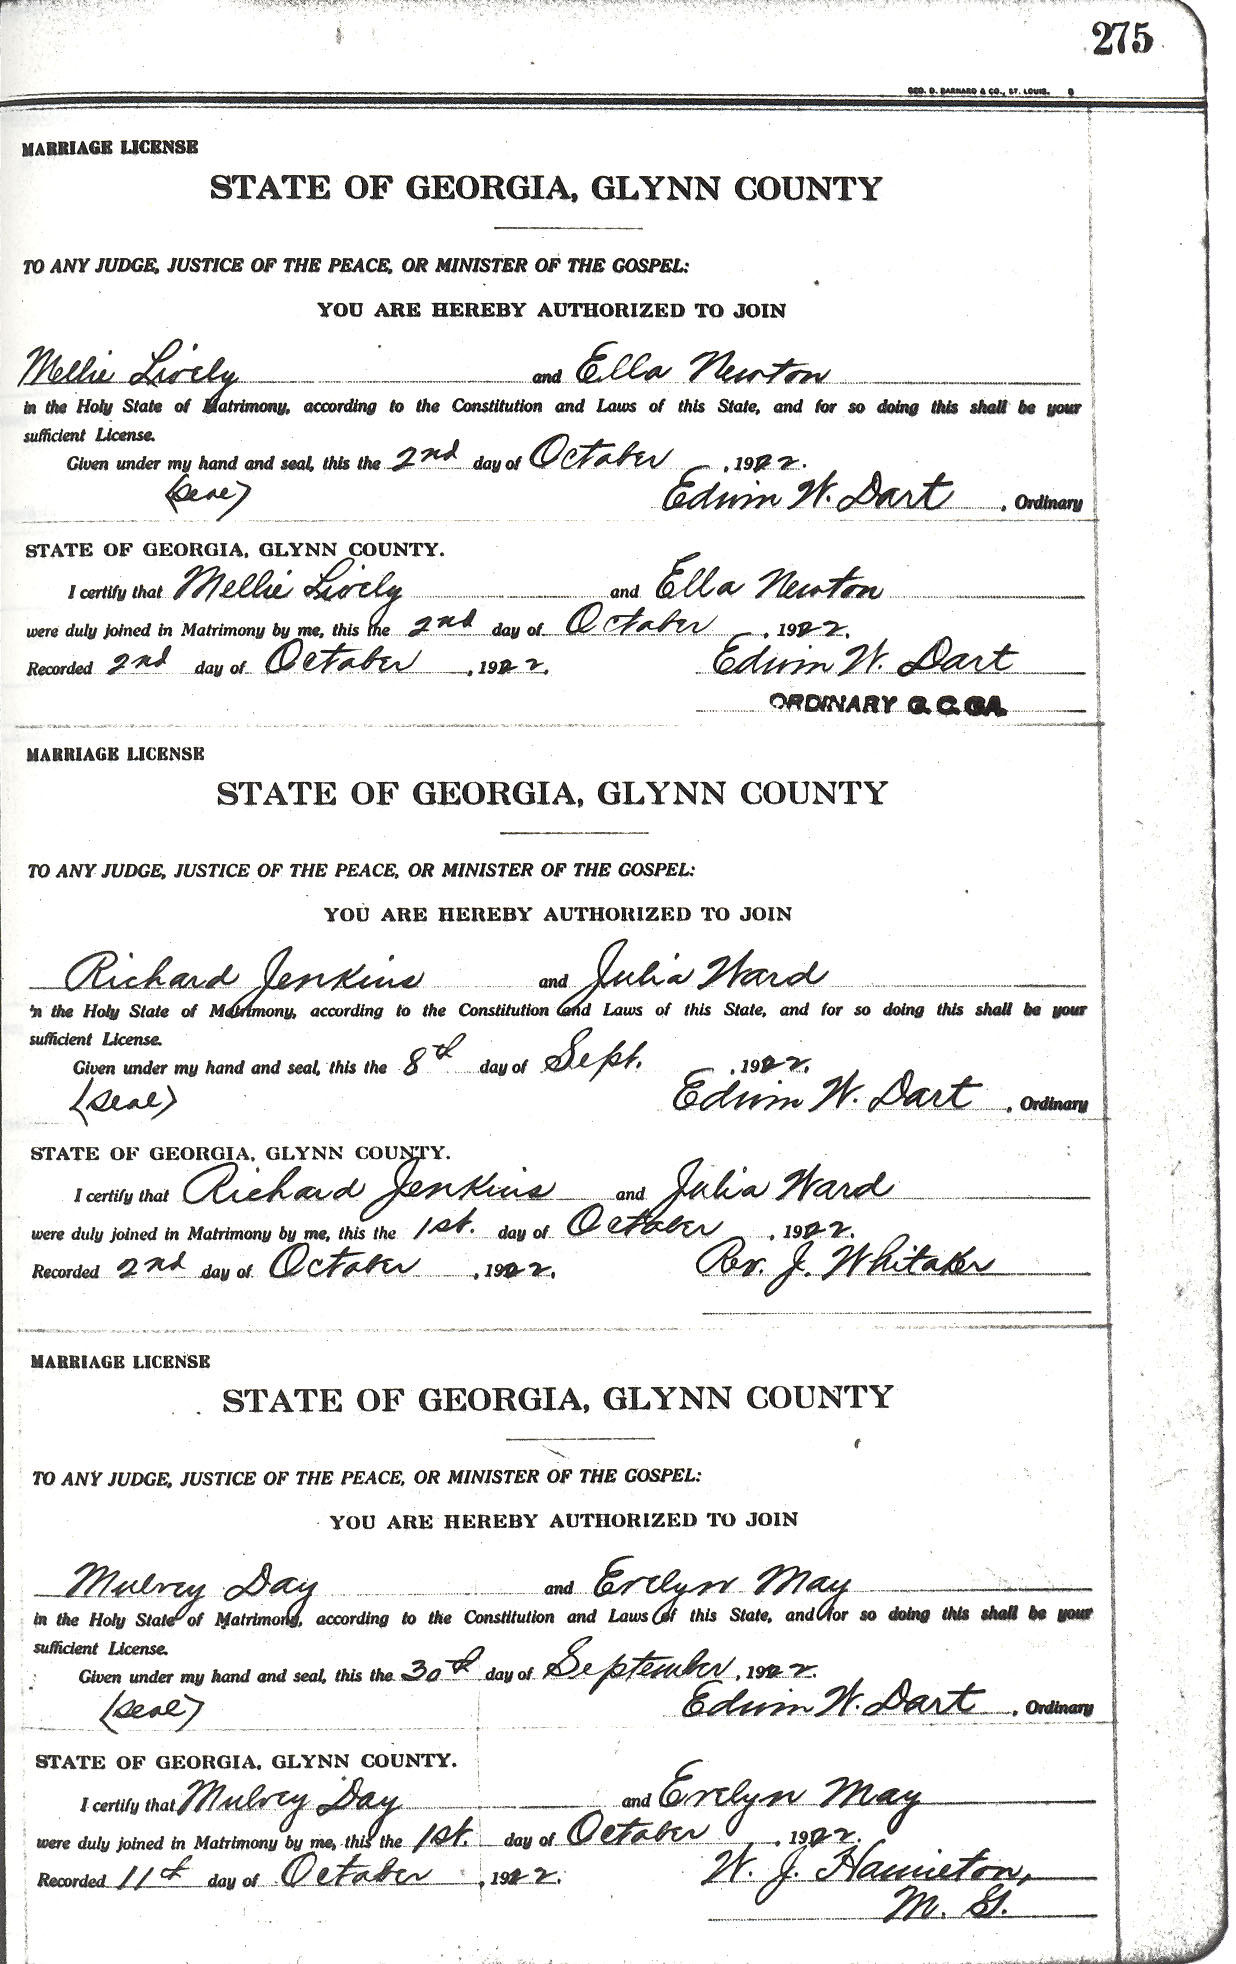 275
GEO. D. BARNARD & CO., ST. LOUIS.
MARRIAGE LICENSE
STATE OF GEORGIA, GLYNN COUNTY
TO ANY JUDGE, JUSTICE OF THE PEACE, OR MINISTER OF THE GOSPEL:
YOU ARE HEREBY AUTHORIZED TO JOIN
Mellie Lively and Ella Newton
in the Holy State of Matrimony, according to the Constitution and Laws of this State, and for so doing this shall be your
sufficient License.
Given under my hand and seal, this the 2nd day of October, 1922.
(seal) Edwin W. Dart, Ordinary
STATE OF GEORGIA, GLYNN COUNTY.
I certify that Mellie Lively and Ella Newton
were duly joined in Matrimony by me, this the 2nd day of October, 1922.
Recorded 2nd day of October, 1922. Edwin W. Dart
ORDINARY G. C. GA.
MARRIAGE LICENSE
STATE OF GEORGIA, GLYNN COUNTY
TO ANY JUDGE, JUSTICE OF THE PEACE, OR MINISTER OF THE GOSPEL:
YOU ARE HEREBY AUTHORIZED TO JOIN
Richard Jenkins and Julia Ward
in the Holy State of Matrimony, according to the Constitution and Laws of this State, and for so doing this shall be your
sufficient License.
Given under my hand and seal, this the 8th day of Sept., 1922.
(seal) Edwin W. Dart, Ordinary
STATE OF GEORGIA, GLYNN COUNTY.
I certify that Richard Jenkins and Julia Ward
were duly joined in Matrimony by me, this the 1st. day of October, 1922.
Recorded 2nd day of October, 1922. Rev. J. Whitaker
MARRIAGE LICENSE
STATE OF GEORGIA, GLYNN COUNTY
TO ANY JUDGE, JUSTICE OF THE PEACE, OR MINISTER OF THE GOSPEL:
YOU ARE HEREBY AUTHORIZED TO JOIN
Mulvey Day and Evelyn May
in the Holy State of Matrimony, according to the Constitution and Laws of this State, and for so doing this shall be your
sufficient License.
Given under my hand and seal, this the 30th day of September, 1922.
(seal) Edwin W. Dart, Ordinary
STATE OF GEORGIA, GLYNN COUNTY.
I certify that Mulvey Day and Evelyn May
were duly joined in Matrimony by me, this the 1st. day of October, 1922.
Recorded 11th day of October, 1922. W. J. Hamilton,
M. G.